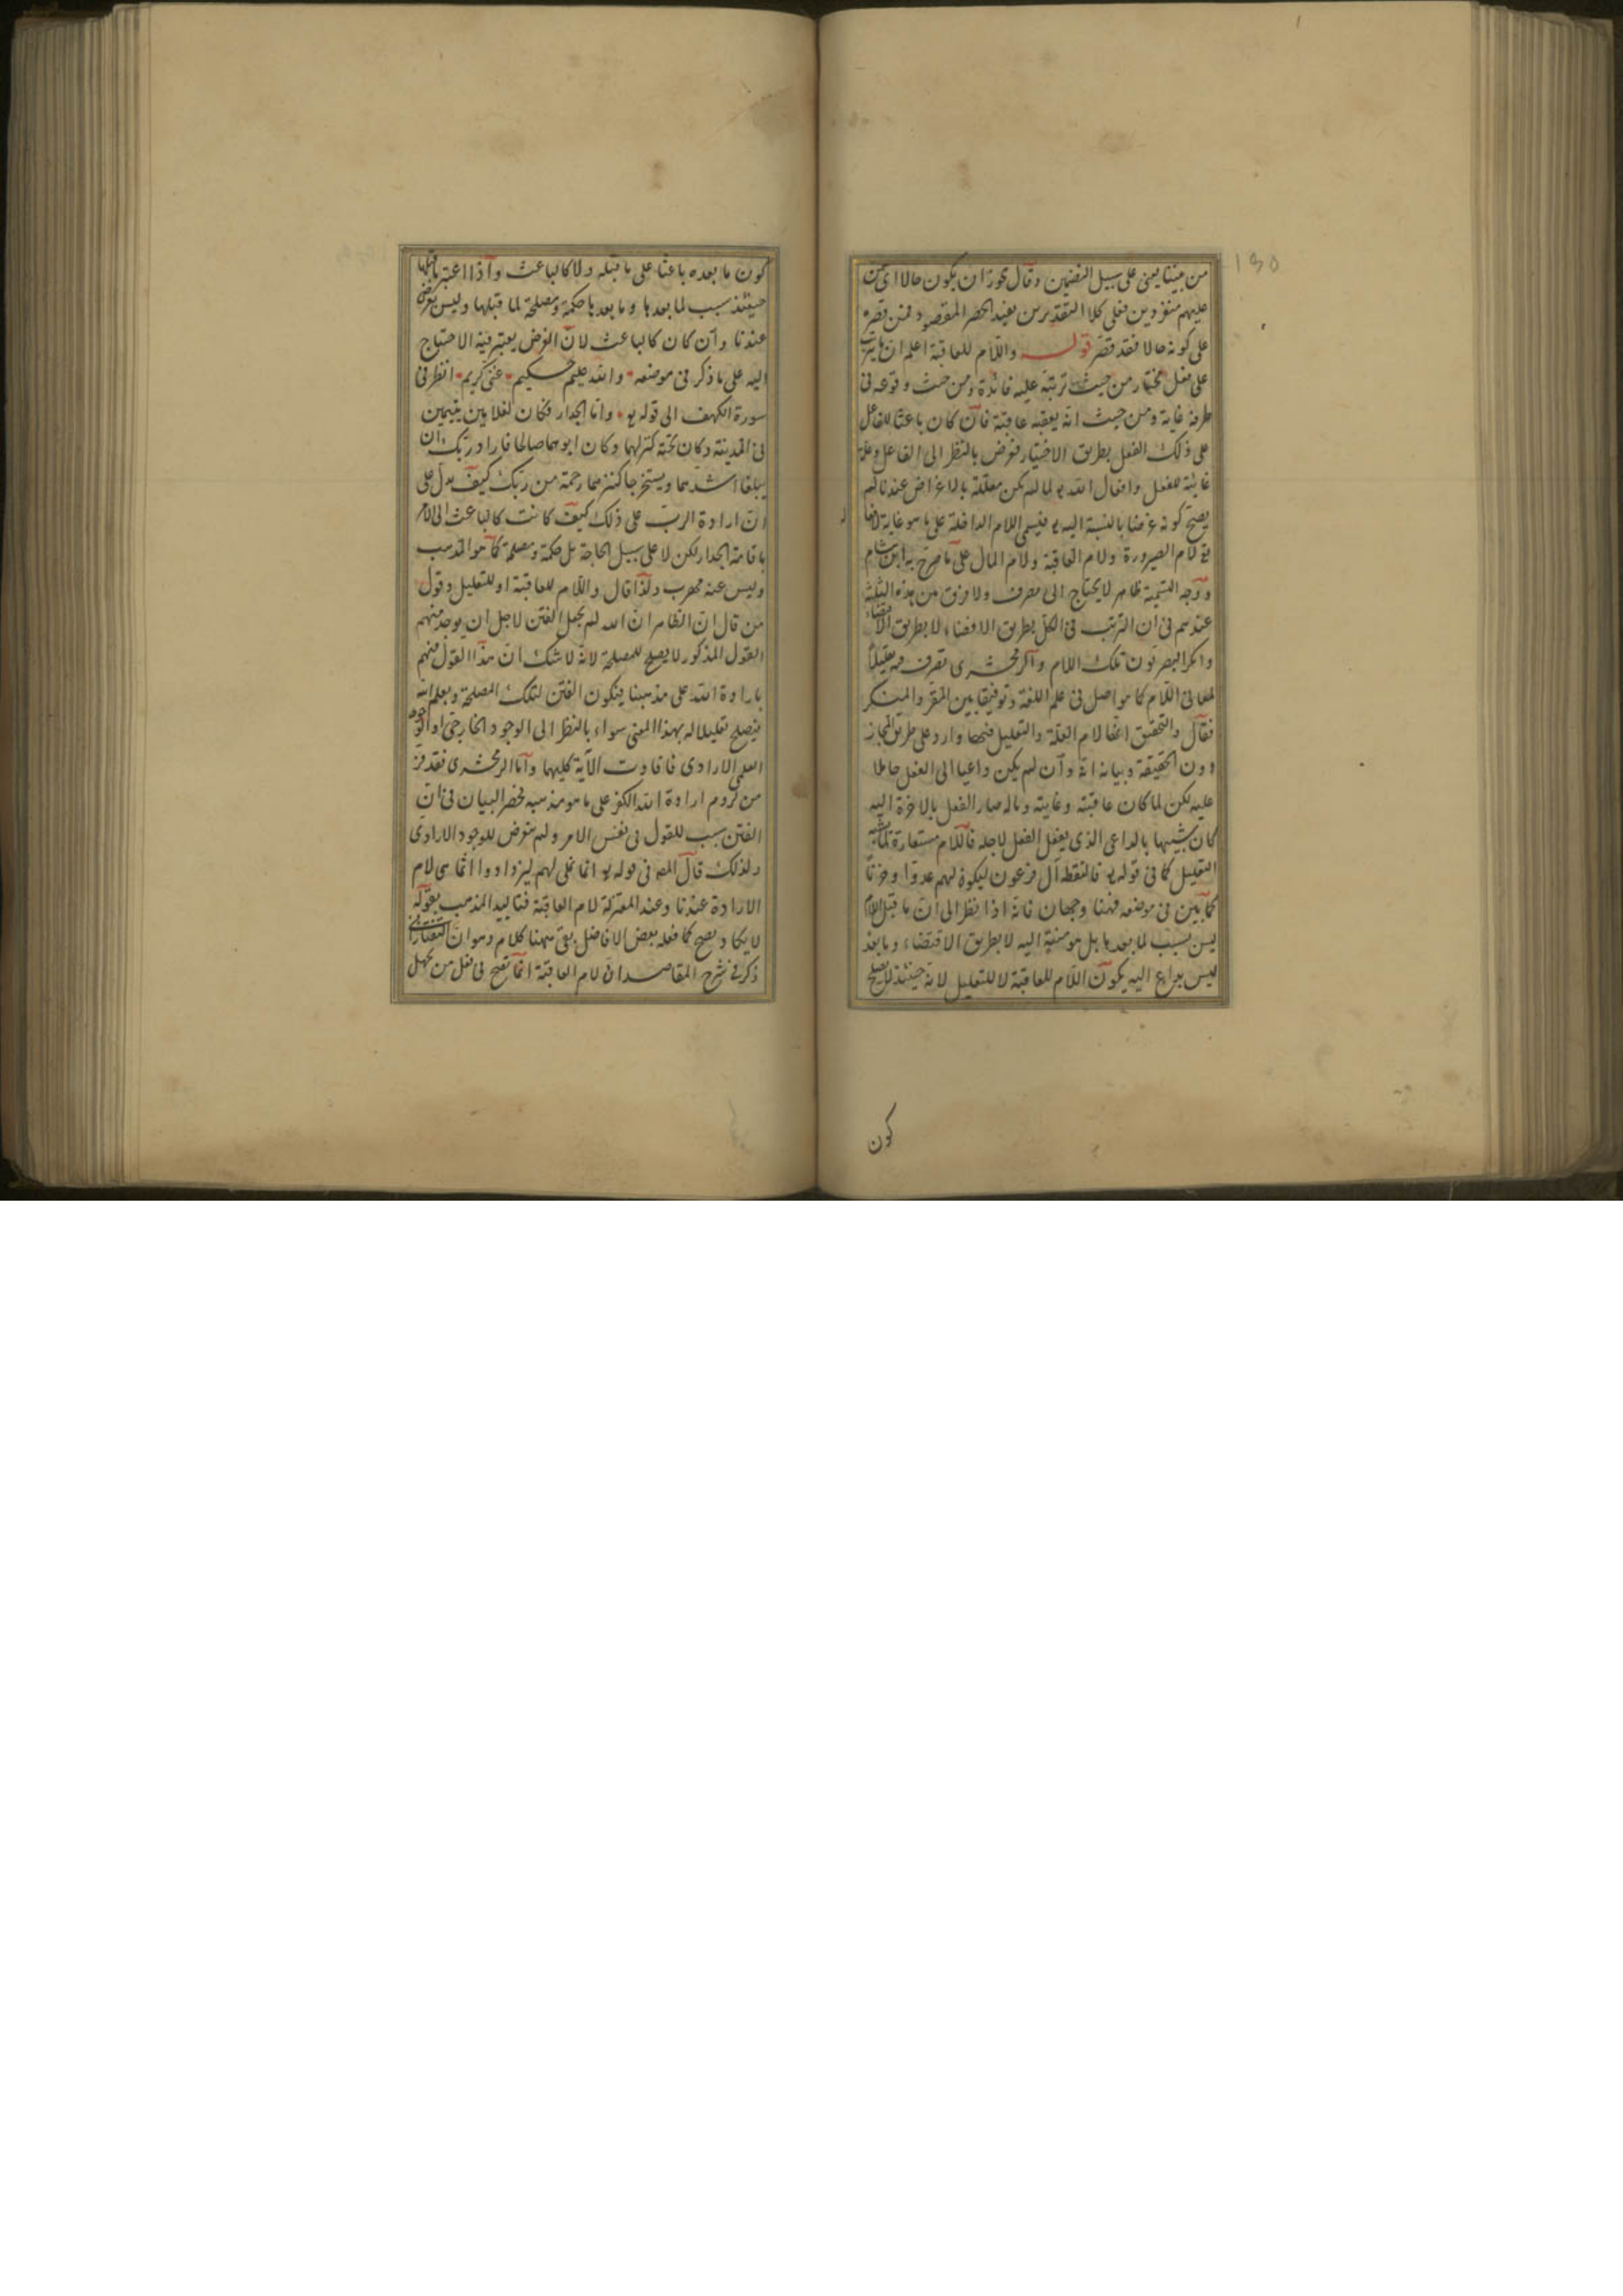 من بيننا يعنى على سبيل التضمين وقال يجوز ان يكون حالا اى من
عليهم منفردين فعلى كلا التقديرين يفيد الحصر المقصود فمن قصره
على كونه حالا فقد قصر قوله واللام للعاقبة اعلم ان ما يترتب
على فعل مختار من حيث ترتبه عليه فائدة ومن حيث وقوعه فى
طرفه غاية ومن حيث انه يعقبه عاقبة فان كان باعثا للفاعل
على ذلك الفعل بطريق الاختيار فغرض بالنظر الى الفاعل وعلة
غائية للفعل وافعال الله تع لما لم يكن معللة بالاغراض عندنا لم
يصح كونه غرضا بالنسبة اليه تع فيسمى اللام الداخلة على ما هو غاية لافعاله
تع لام الصيرورة ولام العاقبة ولام المال على ما صرح به ابن هشام
ووجه التسمية ظاهر لا يحتاج الى معرف ولا فرق من هذه الثلثة
عندهم فى ان الترتب فى الكل بطريق الافضاء لا بطريق الاقتضاء
وانكر البصريون تلك اللام والزمخشرى تصرف فيه تقليلا
لمعانى اللام كما هو اصل فى علم اللغة وتوفيقا بين المقر والمنكر
فقال والتحقيق انها لام العلة والتعليل فيها وارد على طريق المجاز
دون الحقيقة وبيانه انه وان لم يكن داعيا الى الفعل حاملا
عليه لكن لما كان عاقبته وغايته وماله صار الفعل بالاخرة اليه
كان شبيها بالداعى الذى يفعل الفعل لاجله فاللام مستعارة لما يشبه
التعليل كما فى قوله تع فالتقطه آل فرعون ليكون لهم عدوا وحزنا
كما بين فى موضعه فههنا وجهان فانه اذا نظر الى ان ما قبل اللام
ليس بسبب لما بعدها بل هو مفضية اليه لا بطريق الاقتضاء وما بعده
ليس بداع اليه يكون اللام للعاقبة لا للتعليل لانه حينئذ لا يصلح
كون
كون ما بعده باعثا على ما قبله ولا كالباعث واذا اعتبر ما قبلها
حينئذ سبب لما بعدها وما بعدها حكمة ومصلحة لما قبلها وليس بغرض
عندنا وان كان كالباعث لان الغرض يعتبر فيه الاحتياج
اليه على ما ذكر فى موضعه والله عليم حكيم غنى كريم انظر فى
سورة الكهف الى قوله تع واما الجدار فكان لغلامين يتيمين
فى المدينة وكان تحته كنز لهما وكان ابوهما صالحا فاراد ربك ان
يبلغا اشدهما ويستخرجا كنزهما رحمة من ربك كيف يدل على
ان ارادة الرب على ذلك كيف كانت كالباعث الى الامر
باقامة الجدار لكن لا على سبيل الحاجة بل حكمة ومصلحة كما هو المذهب
وليس عنه مهرب ولذا قال واللام للعاقبة او للتعليل وقول
من قال ان الظاهر ان الله لم يجعل الفتن لاجل ان يوجد منهم
القول المذكور لا يصلح للمصلحة لانه لا شك ان هذا القول منهم
بارادة الله على مذهبنا فيكون الفتن لتلك المصلحة ويعلم الله
فيصلح تعليلا له بهذا المعنى سواء بالنظر الى الوجود الخارجى او الوجود
العلمى الارادى فافادت الآية كليهما واما الزمخشرى فقد فر
من لزوم ارادة الله الكفر على ما هو مذهبه فحصر البيان فى ان
الفتن سبب للقول فى نفس الامر ولم يتعرض للوجود الارادى
ولذلك قال المص فى قوله تع انما نملى لهم ليزدادوا اثما هى لام
الارادة عندنا وعند المعتزلة لام العاقبة فتاييد المذهب بقوله
لا يكاد يصح كما فعله بعض الافاضل بقى ههنا كلام وهو ان التفتازانى
ذكر فى شرح المقاصد ان لام العاقبة انما تصح فى فعل من يجهل